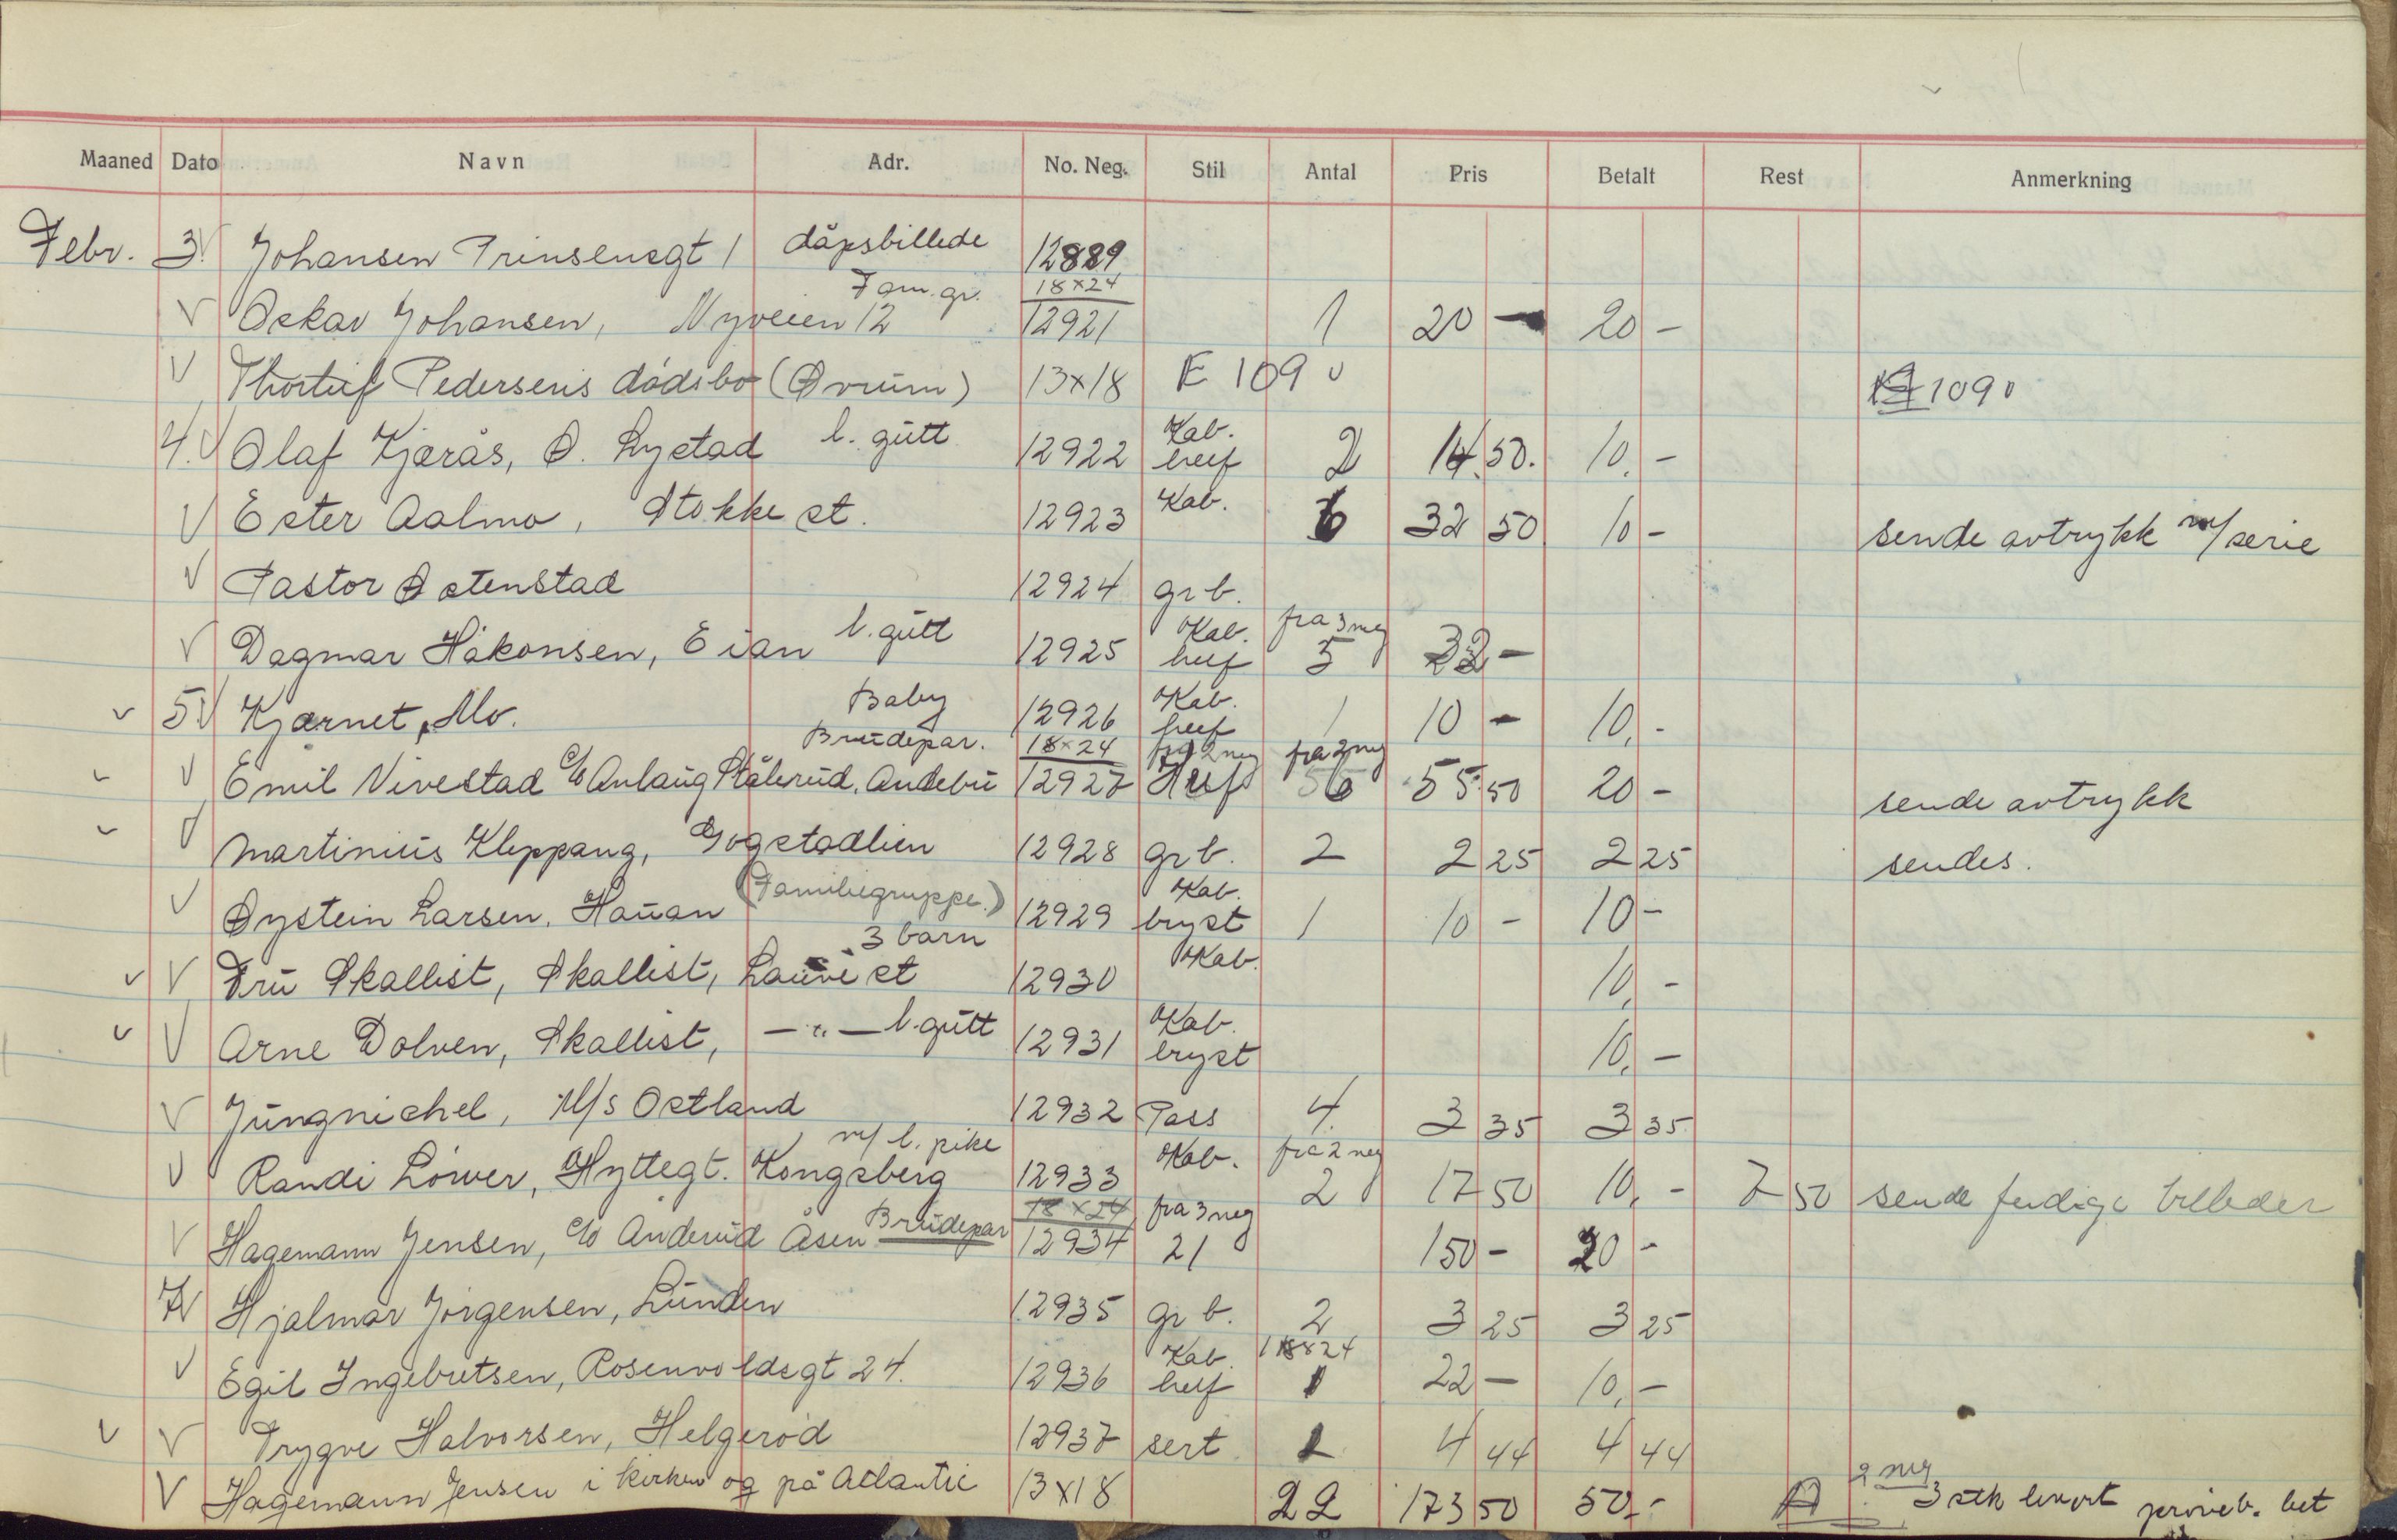 Maaned Dato Navn Adr. No. Neg. Stil Antal Pris Betalt Rest Anmerkning
Febr. 3. V Johansen Prinsensgt 1 dåpsbillede 12889
Fam. gr. 18x24
V Oskar Johansen, Nyveien 12 12921 1 20 - 20 -
V Thorleif Pedersens dødsbo (Ørum) 13x18 E 109 v 109 v
l. gutt Kab.
4. V Olaf Kjærås, Ø. Lystad 12922 heef 2 14.50. 10. -
V Ester Aalmo, Stokke st. 12923 Kab. 6 32 50 10 - sende avtrykk m/ serie
V Pastor Østenstad 12924 gr b.
l. gutt Kab. fra 3 neg
V Dagmar Håkonsen, Eian 12925 heef 5 32 -
Baby Kab.
v 5. V Kjærnet, Mo. 12926 heef 1 10 - 10. -
Brudepar. 18x24 fra 2 neg fra 2 neg
v V Emil Vivestad c/o Anlaug Stålerud, Andebu 12927 Heef 6 55.50 20 - sende avtrykk
v V Martinius Kleppang, Gogstadlien 12928 gr b. 2 2 25 2 25 sendes.
(Familiegruppe.) Kab.
V Øystein Larsen, Hauan 12929 bryst 1 10 - 10 -
3 barn Kab.
v V Fru Skallist, Skallist, Lauve st 12930 10. -
Kab.
v V Arne Dolven, Skallist, — " — l. gutt 12931 bryst 10. -
V Jungnichel, M/s Ostland 12932 Pass 4. 3 35 3 35.
m/ l. pike Kab. fra 2 neg
V Randi Löwer, Hyttegt. Kongsberg 12933 2 17 50 10. - 7 50 sende ferdige billeder
18x24 fra 3 neg
V Hagemann Jensen, c/o Anderud Åsen Brudepar 12934 21 150 - 20 -
7. V Hjalmar Jørgensen, Lunden 12935 gr b. 2 3 25 3 25
Kab. 1 18x24
V Egil Ingebretsen, Rosenvoldsgt 24. 12936 heef 1 22 - 10. -
v V Trygve Halvorsen, Helgerød 12937 sert 1 4 44 4 44
2 neg
V Hagemann Jensen i kirken og på Atlantic 13x18 22 173 50 50. - A 3 stk levert prøveb. bet